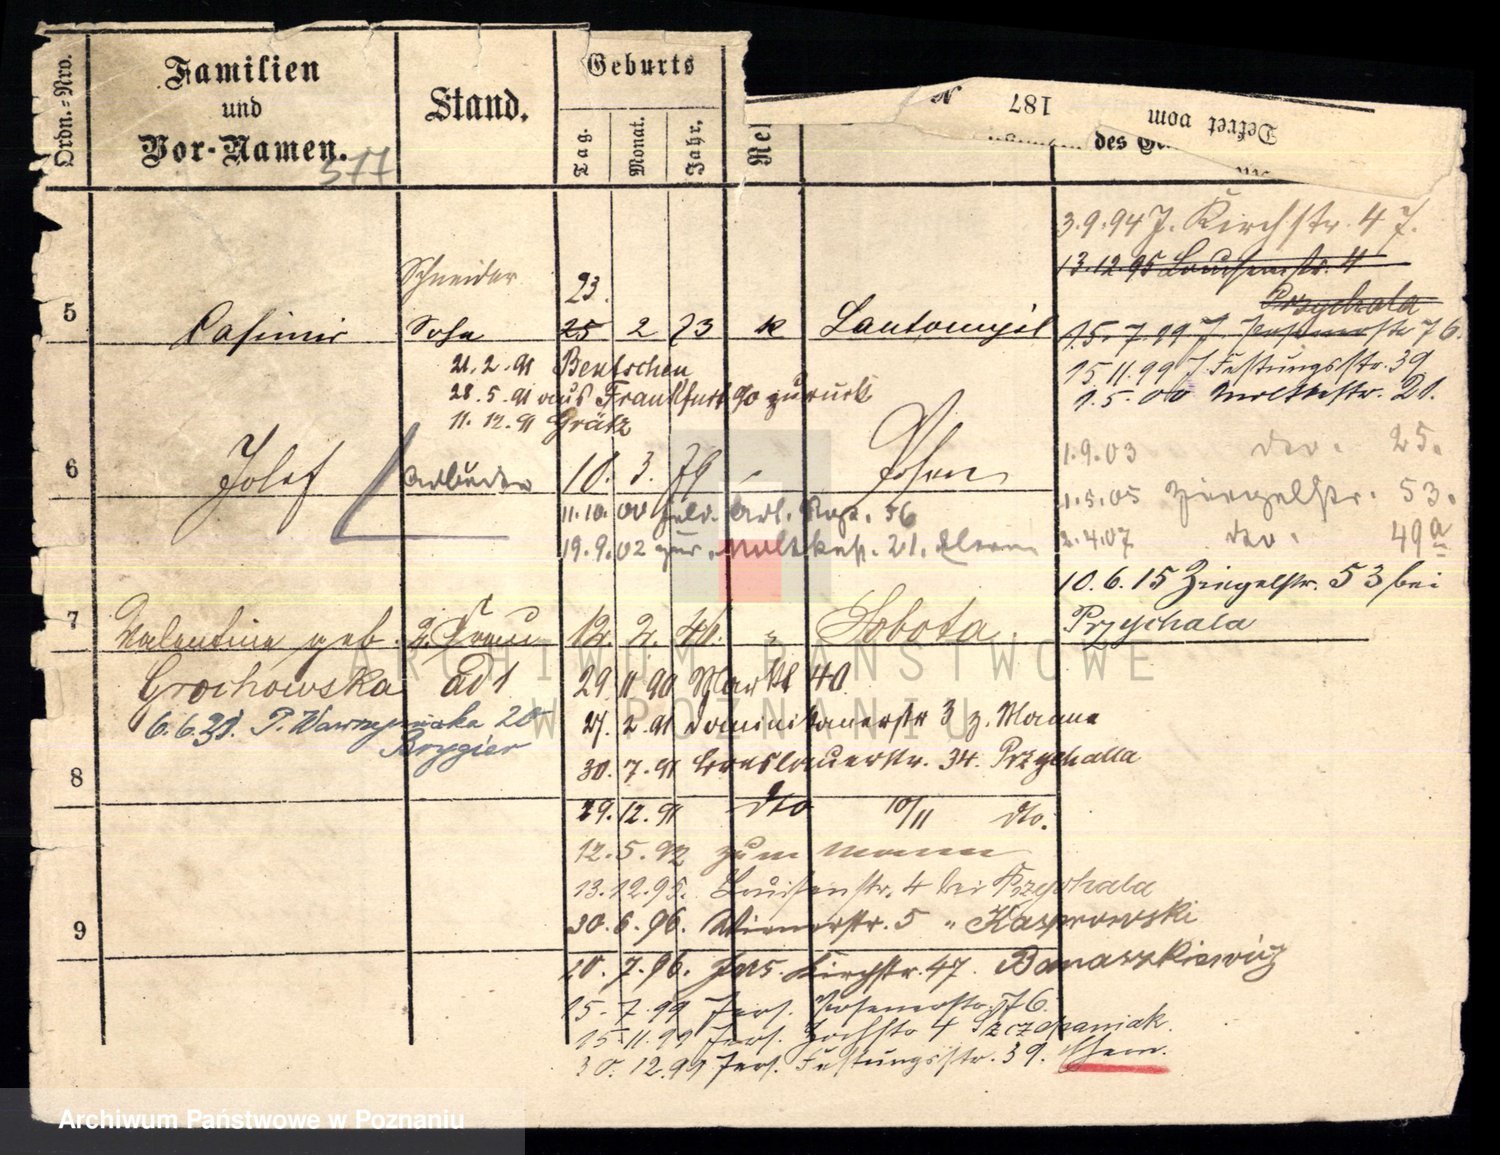 Ordn.-Nro.
Familien
und
Vor-Namen.
577
Stand.
Geburts
Tag.
Monat.
Jahr.
Rel
des Ge
Dekret vom
187
3.9.94 J. Kirchstr. 47.
13.12.95 Louisenstr. 4
Przychala
15.7.99 J. Posenerstr 76.
15.11.99 J. Festungsstr. 39
1.5.00 Moltkestr. 21.
1.9.03 dto. 25.
1.5.05 Ziegelstr. 53.
2.4.07 dto. 49a
10.6.15 Ziegelstr. 53 bei
Przychala
5
Casimir
Schneider
Sohn
23.
25 2 73 k
21.2.91 Bentschen
28.5.91 aus Frankfurt %o zurück
11.12.91 Grätz
6
Josef
Arbeiter
10. 3. 79 Posen
11.10.00 Feld. Art. Rgt. 56
19.9.02 zur. Moltkestr. 21. Eltern
7
Valentine geb. 2. Frau 12. 2. 41. Sobota.
Grochowska ad 1
6.6.31. P. Wawrzyniaka 20
Brygier
29.11.90 Markt 40
27.2.91 Dominikanerstr 3 z. Manne
30.7.91 Breslauerstr. 34. Przychalla
8
29.12.91 dto 10/11 dto.
12.5.92 zum Mann
13.12.95. Louisenstr. 4 bei Przychala
30.6.96. Wienerstr. 5 " Kasprowski
9
20.7.96. Jers. Kirchstr. 47. Banaszkiewicz
15.7.99 Jers. Posenerstr. 76.
15.11.99 Jers. Hochstr 4 Szczepaniak.
30.12.99 Jers. Festungsstr. 39. Ehem.
ARCHIWUM PAŃSTWOWE
W POZNANIU
Archiwum Państwowe w Poznaniu